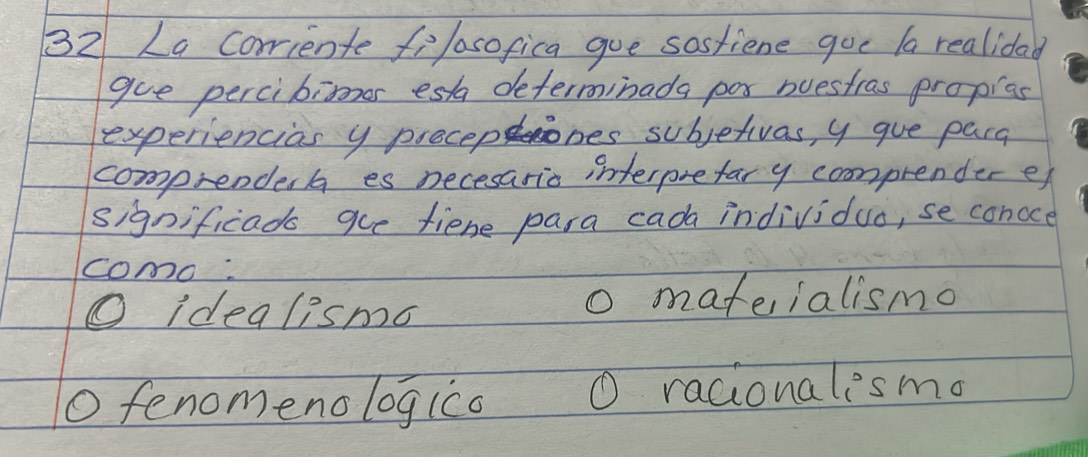 32 La corriente filosofica que sostiene que la realidad
que percibimos está determinada por nuestras propias
experiencias y precepciones subjetivas, y que para
comprenderla es necesario interpretar y comprender el
significado que tiene para cada individuo, se conoce
como:
O idealismo O materialismo
O fenomenológico O racionalismo